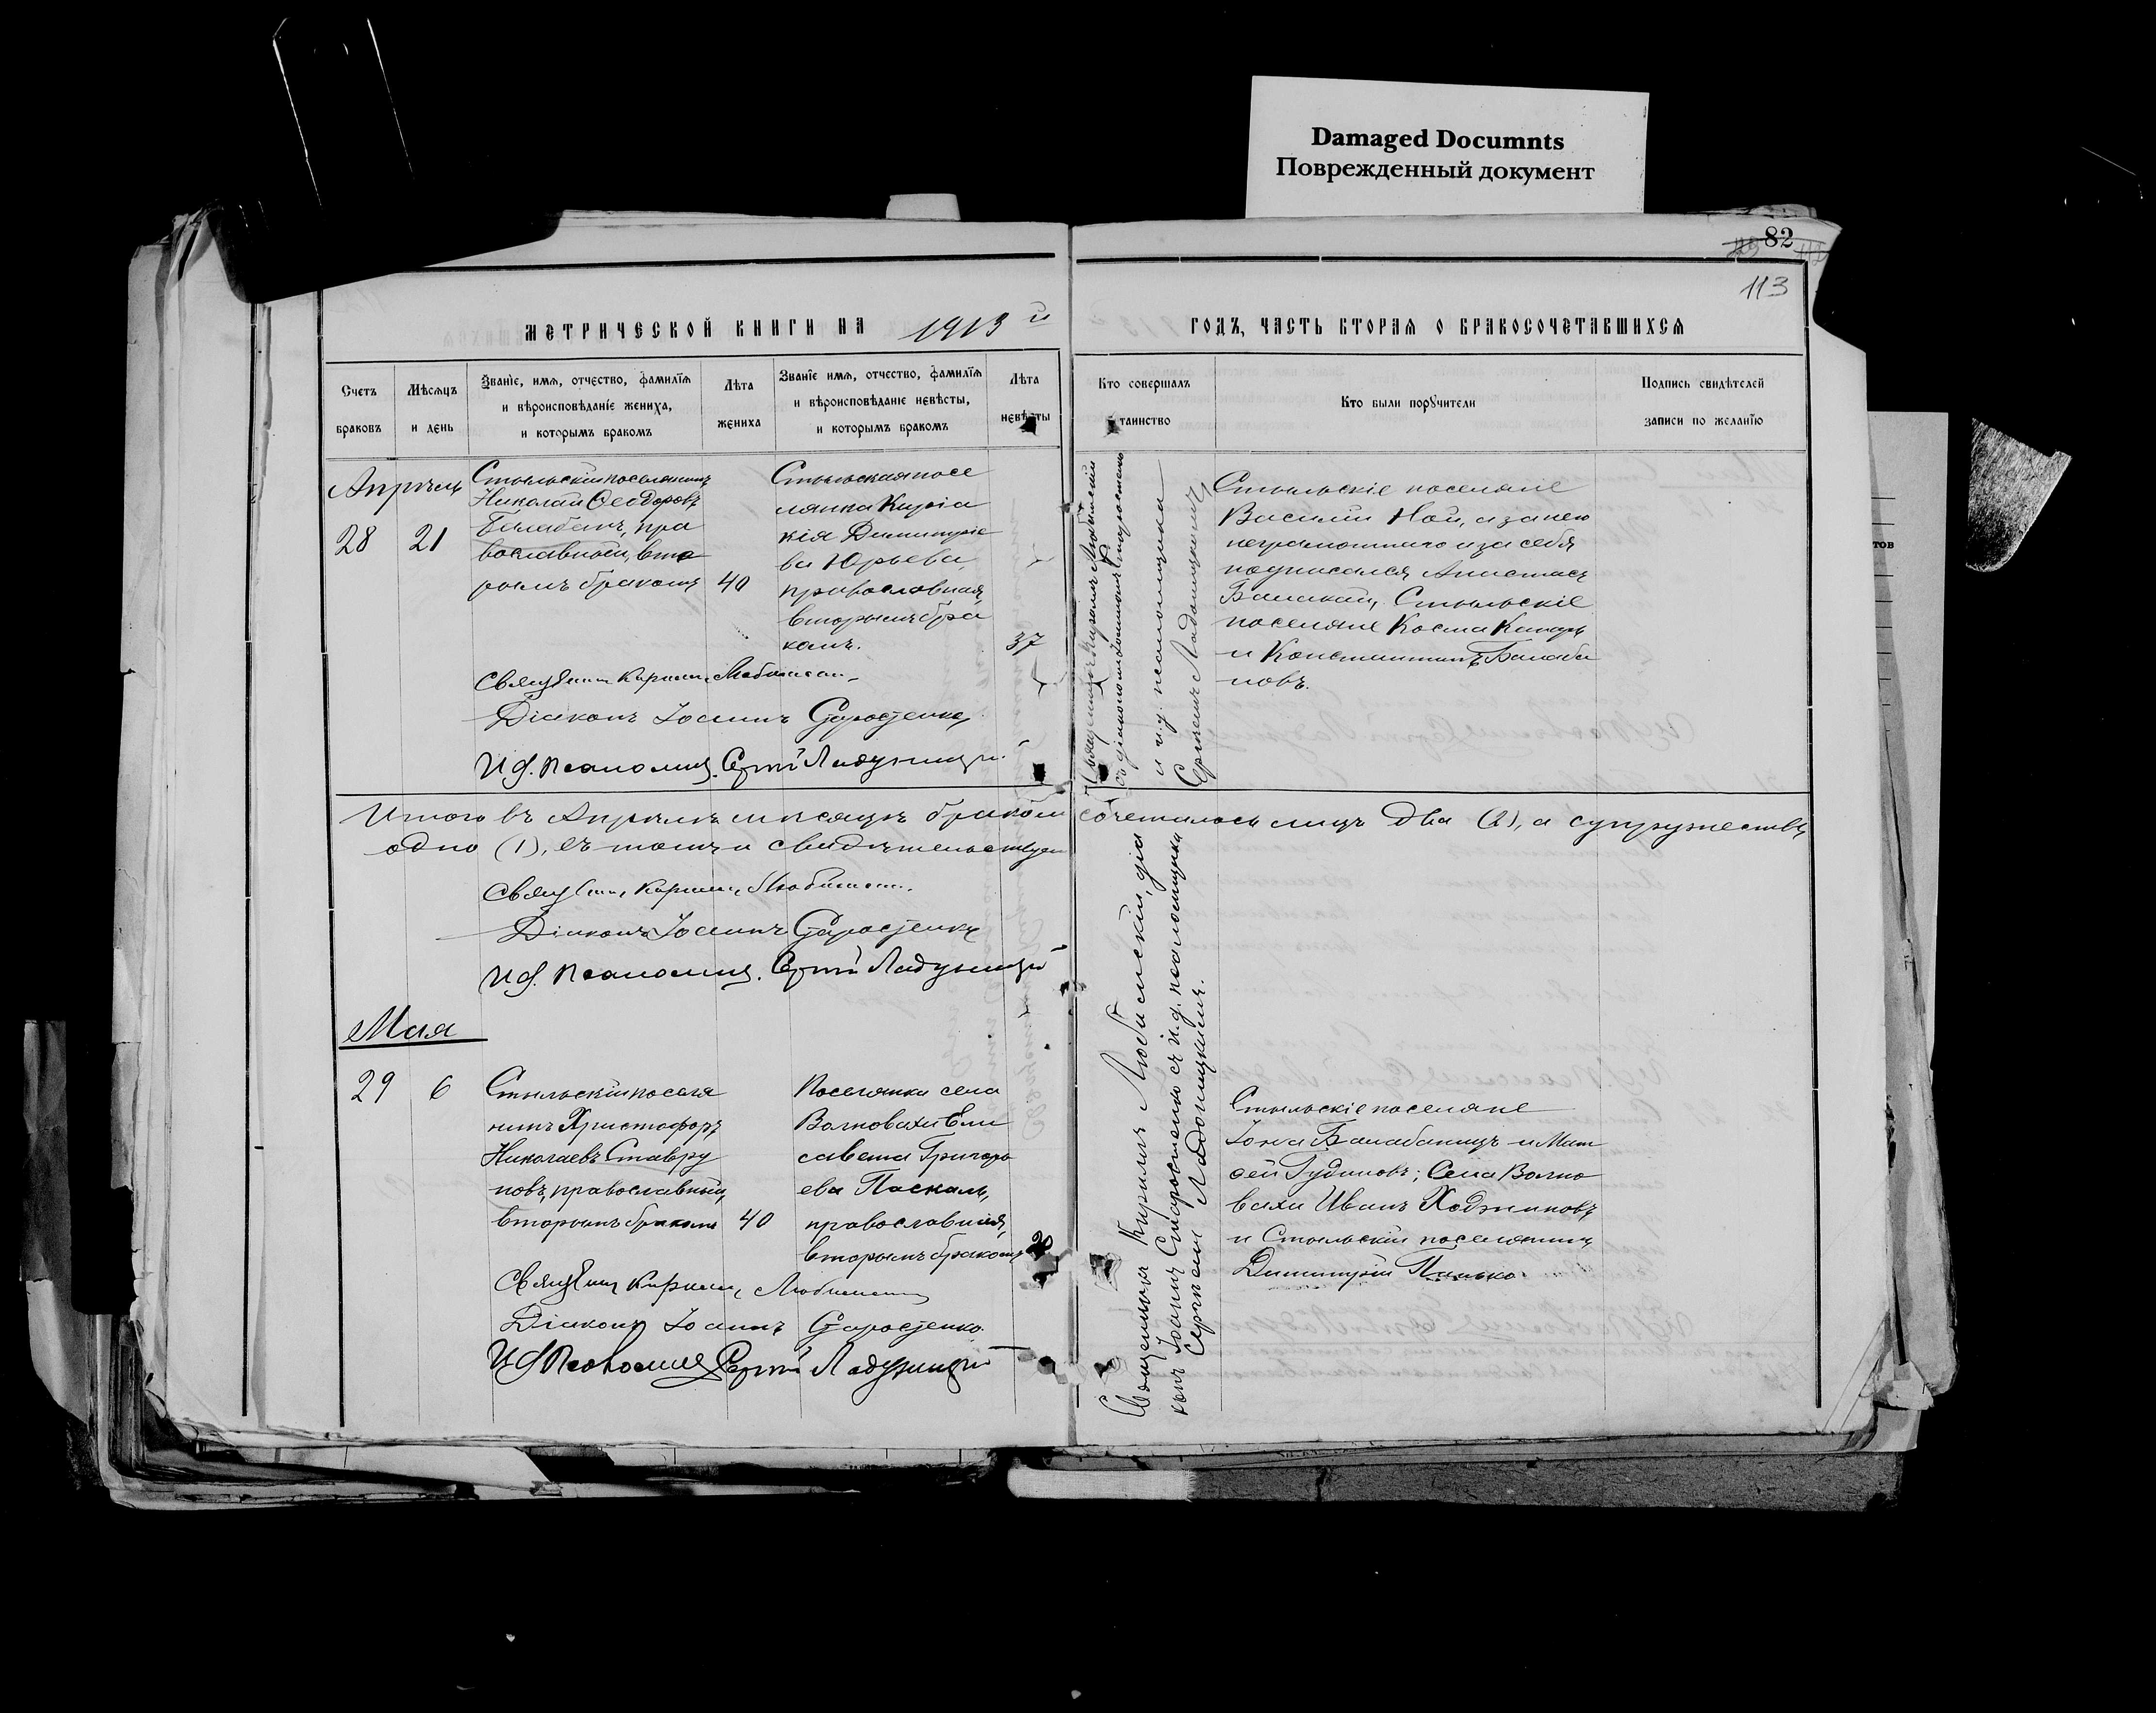 Damaged Documnts
Поврежденный документ
82
113
МЕТРИЧЕСКОЙ КНИГИ НА 1913 й ГОДЪ, ЧАСТЬ ВТОРАЯ О БРАКОСОЧЕТАВШИХСЯ
Счетъ браковъ
Мѣсяцъ и день
Званіе, имя, отчество, фамилія
и вѣроисповѣданіе жениха,
и которымъ бракомъ
Лѣта жениха
Званіе имя, отчество, фамилія
и вѣроисповѣданіе невѣсты,
и которымъ бракомъ
Лѣта невѣсты
Кто совершалъ таинство
Кто были поручители
Подпись свидѣтелей
записи по желанію
Апрѣль
28
21
Стыльскій поселянинъ
Николай Ѳеодоровъ
Балабанъ, пра
вославный, вто
рымъ бракомъ
40
Стыльская посе
лянка Киріа
кія Димитріе
ва Юрьева,
православная,
вторымъ бра
комъ.
37
Священникъ Кириллъ Любимскій
съ діакономъ Іоанномъ Старостенко
и и. д. псаломщика
Сергіемъ Ладоницкимъ
Стыльскіе поселяне
Василій Ной, а за него
неграмотнаго и за себя
подписался Анастасъ
Стыльскіе
поселяне Косма
и Константинъ Балаба
новъ.
Священникъ Кириллъ Любимскій
Діаконъ Іоаннъ Старостенко
И. д. псаломщ. Сергій Ладоницкій
Итого въ Апрѣлѣ мѣсяцѣ бракомъ сочеталось лицъ два (2), а супружествъ
одно (1), въ томъ и свидѣтельствуемъ
Священ. Кириллъ Любимскій
Діаконъ Іоаннъ Старостенко
И. д. псаломщ. Сергій Ладоницкій
Мая
29
6
Стыльскій поселя
нинъ Христофоръ
Николаевъ Ставру
новъ, православный,
вторымъ бракомъ
40
Поселянка села
Волновахи Ели
савета Григорь
ева Паскаль,
православная,
вторымъ бракомъ
20
Священникъ Кириллъ Любимскій, діа
конъ Іоаннъ Старостенко съ и. д. псаломщика
Сергіемъ Ладоницкимъ.
Стыльскіе поселяне
Іона Балабаницъ и Мат
ѳей Гудиновъ; Села Волно
вахи Иванъ Ходжиновъ
и Стыльскій поселянинъ
Димитрій Панько.
Священникъ Кириллъ Любимскій
Діаконъ Іоаннъ Старостенко.
И. д. псаломщ. Сергій Ладоницкій